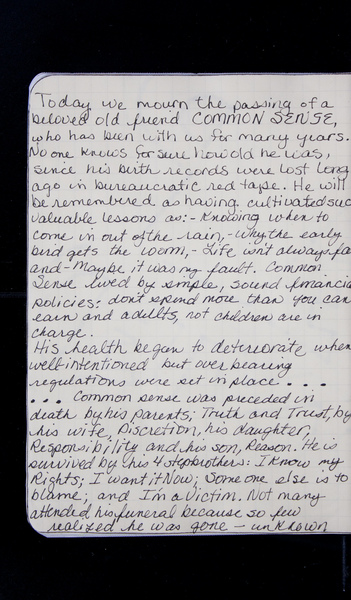 Today we mourn the passing of a
beloved old friend COMMON SENSE,
who has been with us for many years.
No one knows for sure how old he was,
since his birth records were lost long
ago in bureaucratic red tape. He will
be remembered as having cultivated suc
valuable lessons as:- Knowing when to
come in out of the rain, - why the early
bird gets the worm, - Life isn't always fa
and - Maybe it was my fault. Common
Sense lived by simple, sound financia
policies: don't spend more than you can
earn and adults, not children are in
charge.
His health began to deteriorate when
well-intentioned but over bearing
regulations were set in place....
... Common sense was preceded in
death by his parents; Truth and Trust, by
his wife, Discretion, his daughter,
Responsibility and his son, Reason. He is
survived by his 4 stepbrothers: I know my
Rights; I want it Now; Someone else is to
blame; and I'm a Victim. Not many
attended his funeral because so few
realized he was gone - unknown